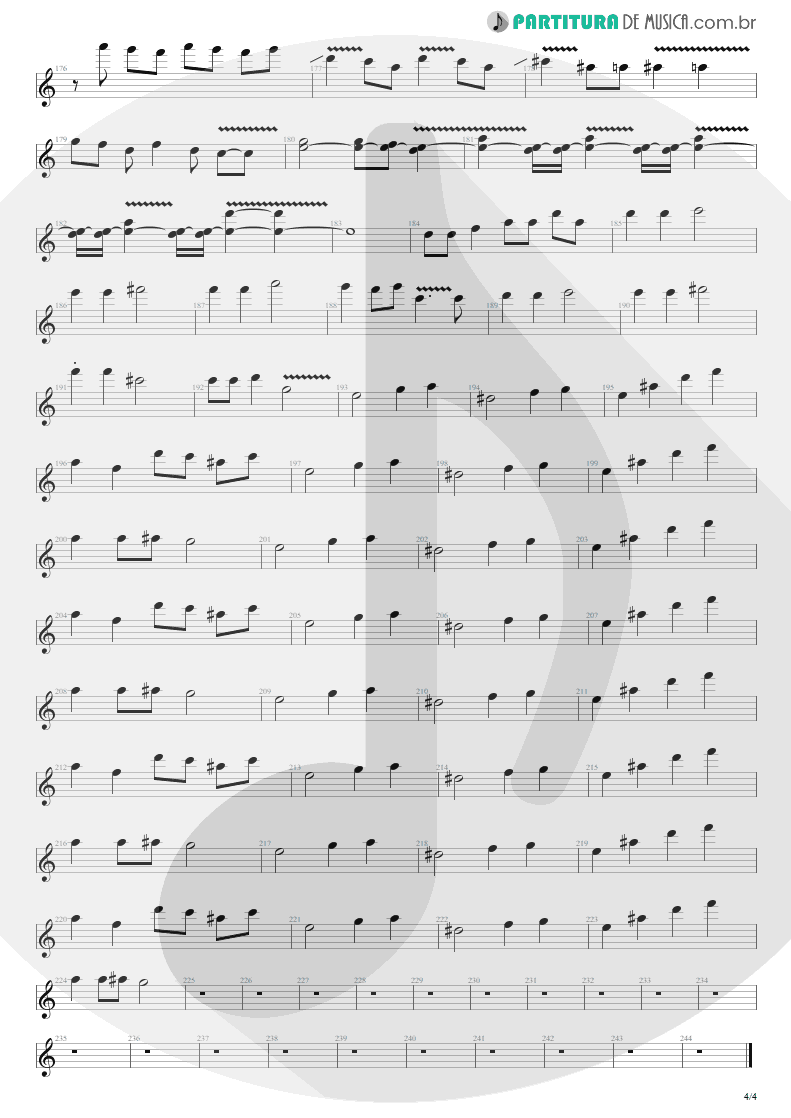 PARTITURA DE MUSICA.com.br
176 177 178
179 180 181
182 183 184 185
186 187 188 189 190
191 192 193 194 195
196 197 198 199
200 201 202 203
204 205 206 207
208 209 210 211
212 213 214 215
216 217 218 219
220 221 222 223
224 225 226 227 228 229 230 231 232 233 234
235 236 237 238 239 240 241 242 243 244
4/4